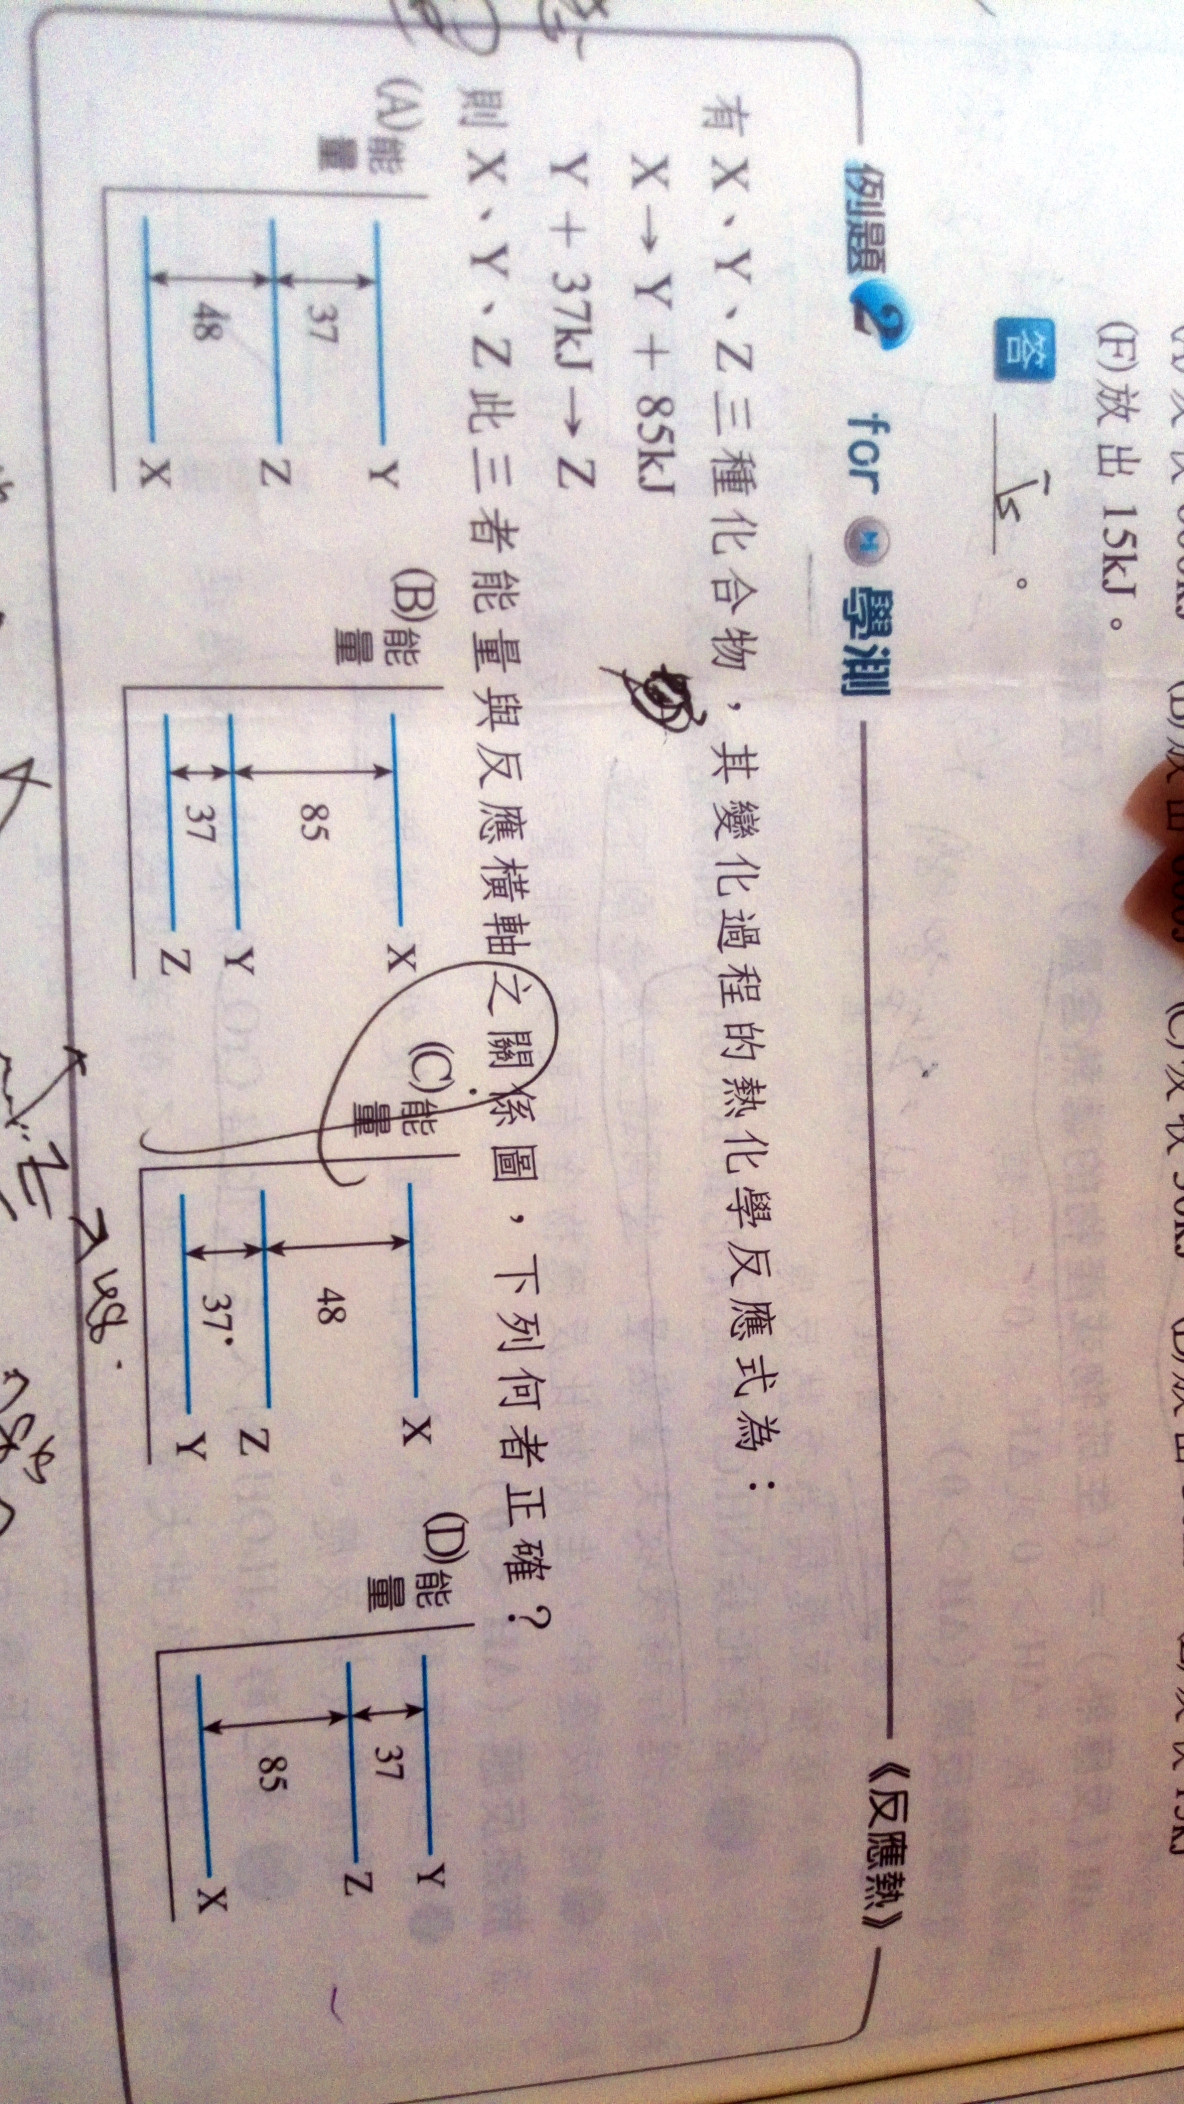 (F)放出 15kJ。
答 ls 。
例題2 for 學測 《反應熱》
有 X、Y、Z 三種化合物，其變化過程的熱化學反應式為：
X → Y + 85kJ
Y + 37kJ → Z
則 X、Y、Z 此三者能量與反應橫軸之關係圖，下列何者正確？
(A)能量
Y
37
Z
48
X
(B)能量
X
85
Y
37
Z
(C)能量
X
48
Z
37
Y
(D)能量
Y
37
Z
85
X
48